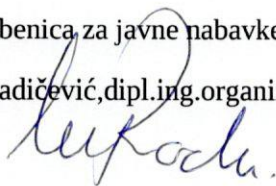 benica za javne nabavke
adičević,dipl.ing.organi